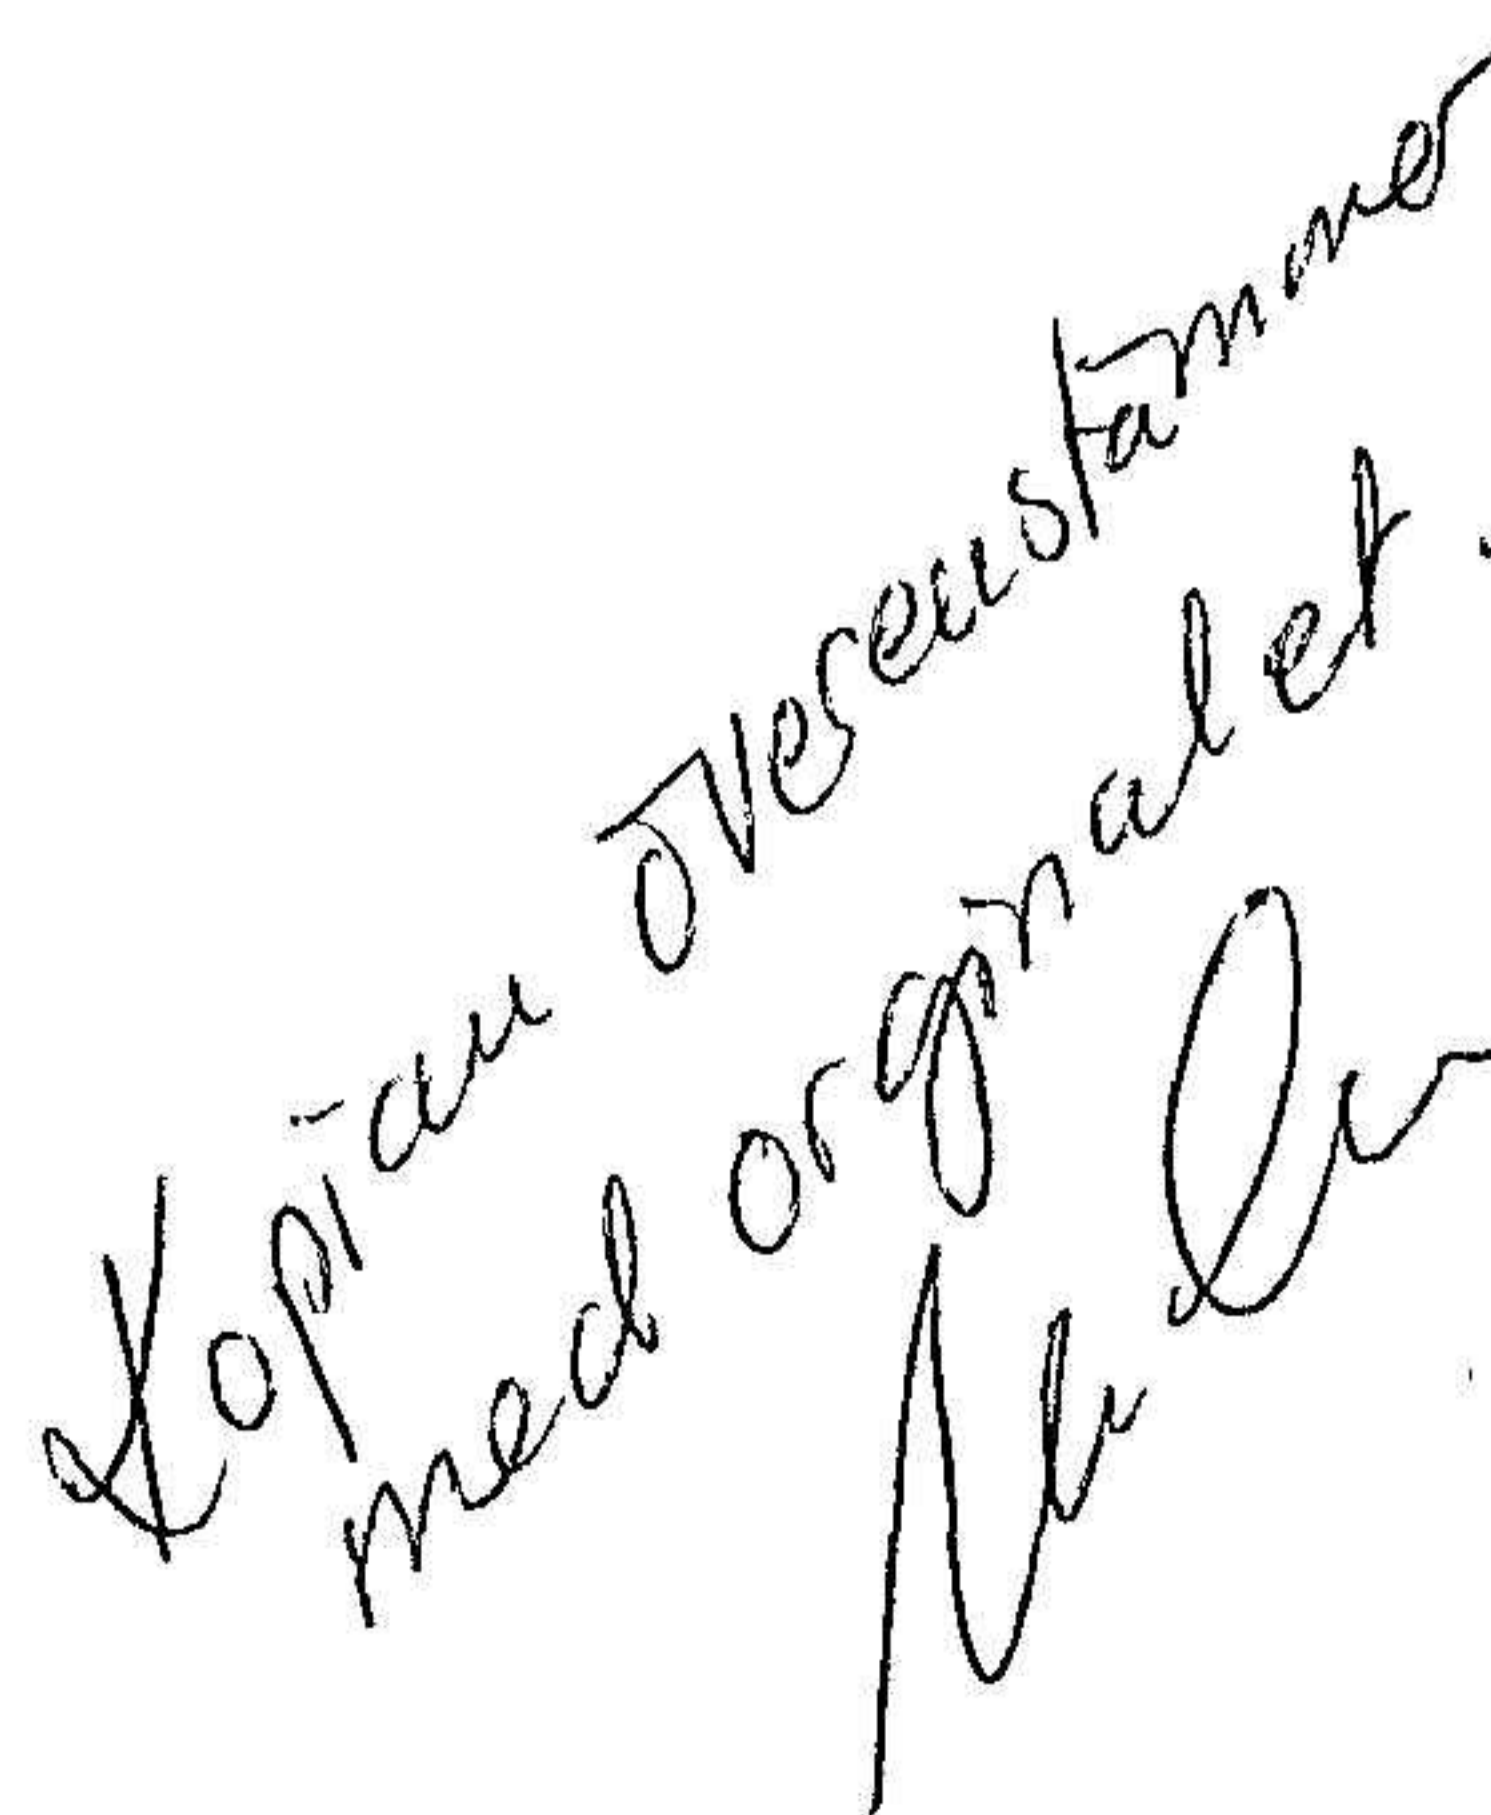 Kopian överenstämmer
med orginalet